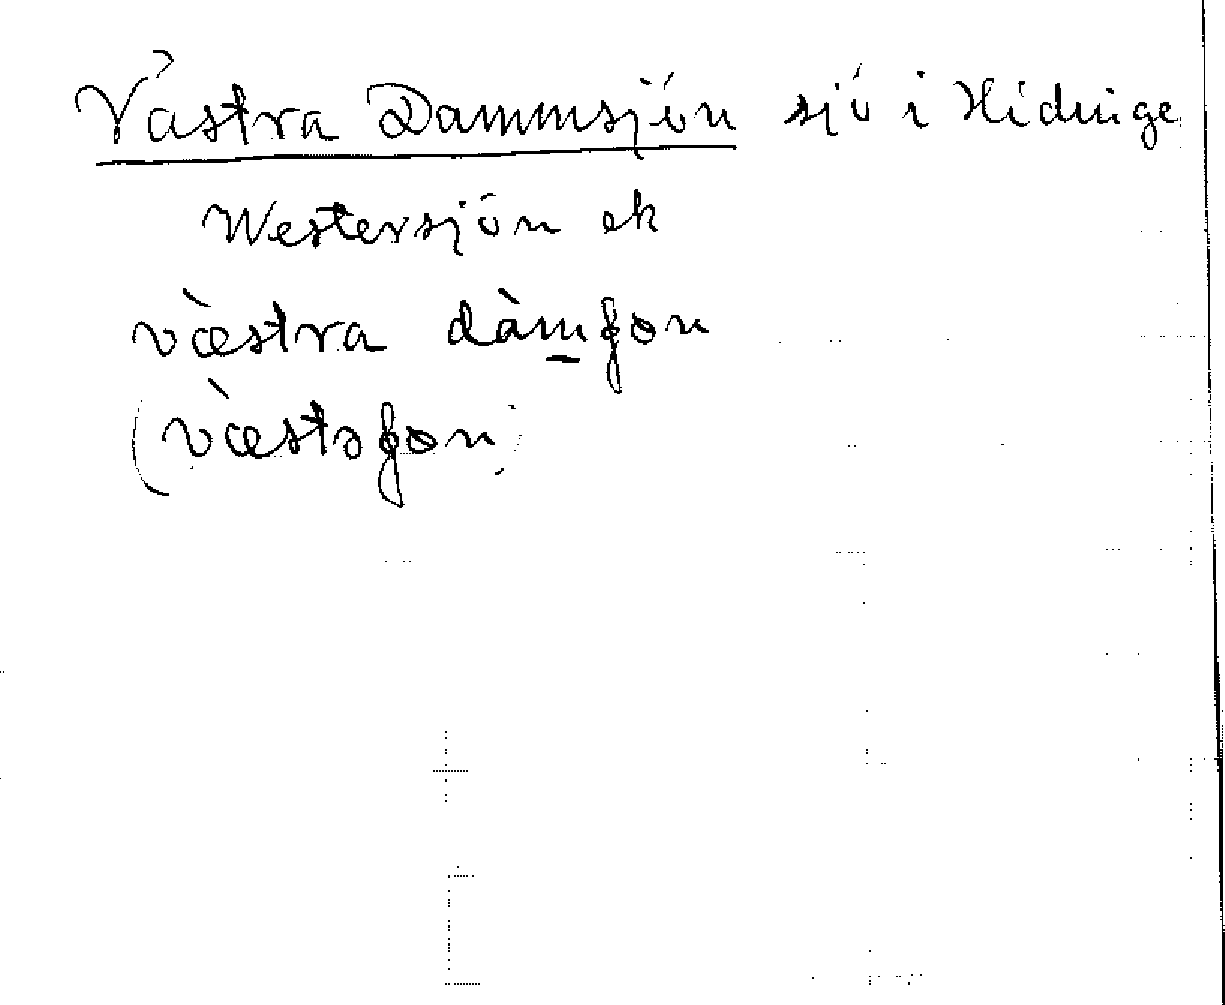 Västra Dammsjön sjö i Hidinge
Westersjön ek
væ̀stra dàm̲ʃɵn
(væ̀stəʃɵn)